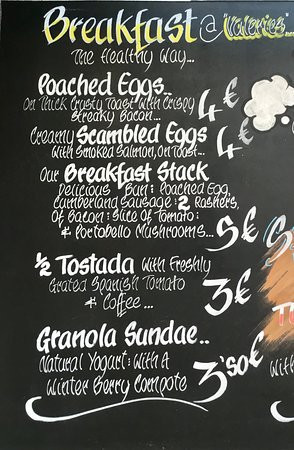 Breakfast @ Valeries...
The Healthy Way...
Poached Eggs..
On Thick Crusty Toast With Crispy
Streaky Bacon... 4€
Creamy Scambled Eggs
With Smoked Salmon, On Toast... 4€
Our Breakfast Stack
Delicious Bun: Poached Egg,
Cumberland Sausage: 2 Rashers,
Of Bacon: Slice Of Tomato:
& Portobello Mushrooms... 5€
½ Tostada With Freshly
Grated Spanish Tomato
& Coffee... 3€
Granola Sundae..
Natural Yogurt: With A
Winter Berry Compote 3'50€